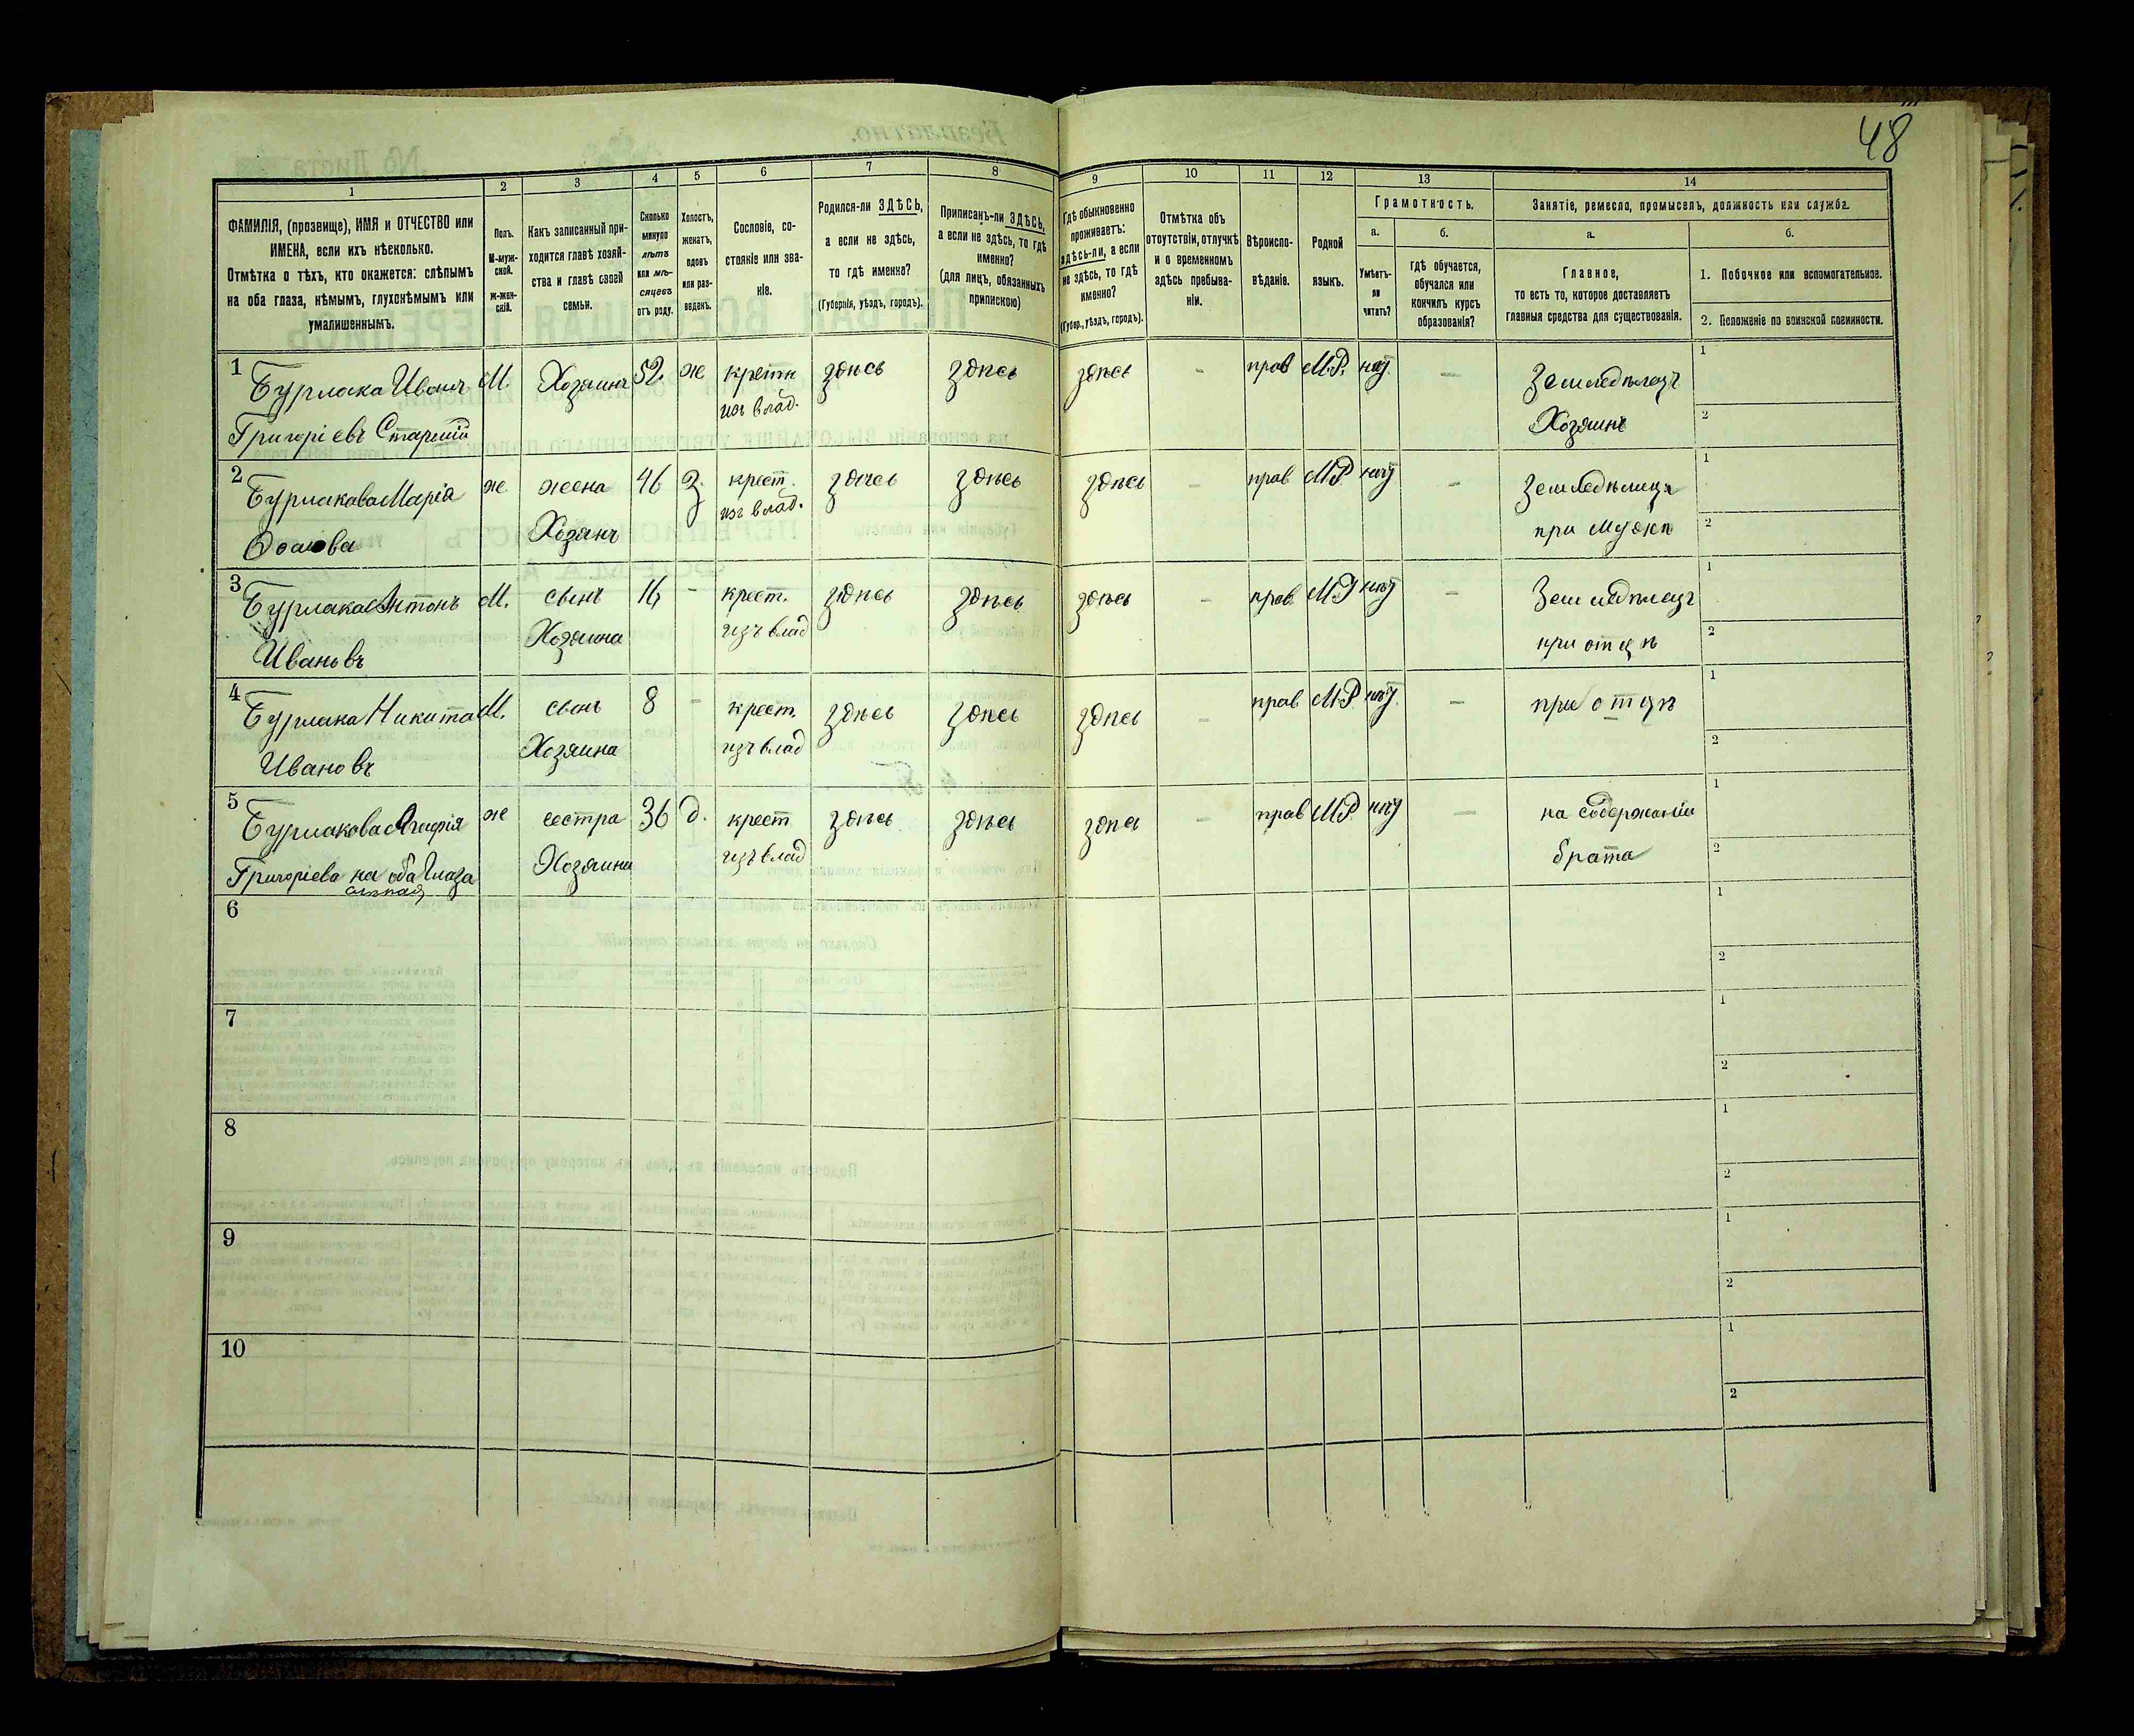 48
1 2 3 4 5 6 7 8 9 10 11 12 13 14
ФАМИЛІЯ, (прозвище), ИМЯ и ОТЧЕСТВО или
ИМЕНА, если ихъ нѣсколько.
Отмѣтка о тѣхъ, кто окажется: слѣпымъ
на оба глаза, нѣмымъ, глухонѣмымъ или
умалишеннымъ.
Полъ.
М-муж-
ской.
Ж-жен-
скій.
Какъ записанный при-
ходится главѣ хозяй-
ства и главѣ своей
семьи.
Сколько
минуло
лѣтъ
или мѣ-
сяцевъ
отъ роду.
Холостъ,
женатъ,
вдовъ
или раз-
веденъ.
Сословіе, со-
стояніе или зва-
ніе.
Родился-ли ЗДѢСЬ,
а если не здѣсь,
то гдѣ именно?
(Губернія, уѣздъ, городъ).
Приписанъ-ли ЗДѢСЬ,
а если не здѣсь, то гдѣ
именно?
(для лицъ, обязанныхъ
припискою)
Гдѣ обыкновенно
проживаетъ:
здѣсь-ли, а если
не здѣсь, то гдѣ
именно?
(Губер., уѣздъ, городъ).
Отмѣтка объ
отсутствіи, отлучкѣ
и о временномъ
здѣсь пребыва-
ніи.
Вѣроиспо-
вѣданіе.
Родной
языкъ.
Грамотность.
а.
Умѣетъ-
ли
читать?
б.
гдѣ обучается,
обучался или
кончилъ курсъ
образованія?
Занятіе, ремесло, промыселъ, должность или служба.
а.
Главное,
то есть то, которое доставляетъ
главныя средства для существованія.
б.
1. Побочное или вспомогательное.
2. Положеніе по воинской повинности.
1 Бурлака Иванъ М. Хозяинъ 52. ж крестн здѣсь здѣсь здѣсь - прав М.Р. нѣт. - Земледѣлецъ 1
Григоріевъ Старшій изъ влад. Хозяинъ 2
2 Бурлакова Марія ж жена 46 З. крест. здѣсь здѣсь здѣсь - прав М.Р нѣт - Земледѣлица 1
Хозяинъ изъ влад. при мужѣ 2
3 Бурлака Антонъ М. сынъ 16 - крест. здѣсь здѣсь здѣсь - прав М.Р нѣт - Земледѣлецъ 1
Ивановъ Хозяина изъ влад при отцѣ 2
4 Бурлака Никита М. сынъ 8 - крест. здѣсь здѣсь здѣсь - прав М.Р нѣт. - при отцѣ 1
Ивановъ Хозяина изъ влад 2
5 Бурлакова Агафія ж сестра 36 д. крест здѣсь здѣсь здѣсь - прав М.Р. нѣт - на содержаніи 1
Григоріева на оба глаза Хозяина изъ влад брата 2
слѣпая
6 1
2
7 1
2
8 1
2
9 1
2
10 1
2